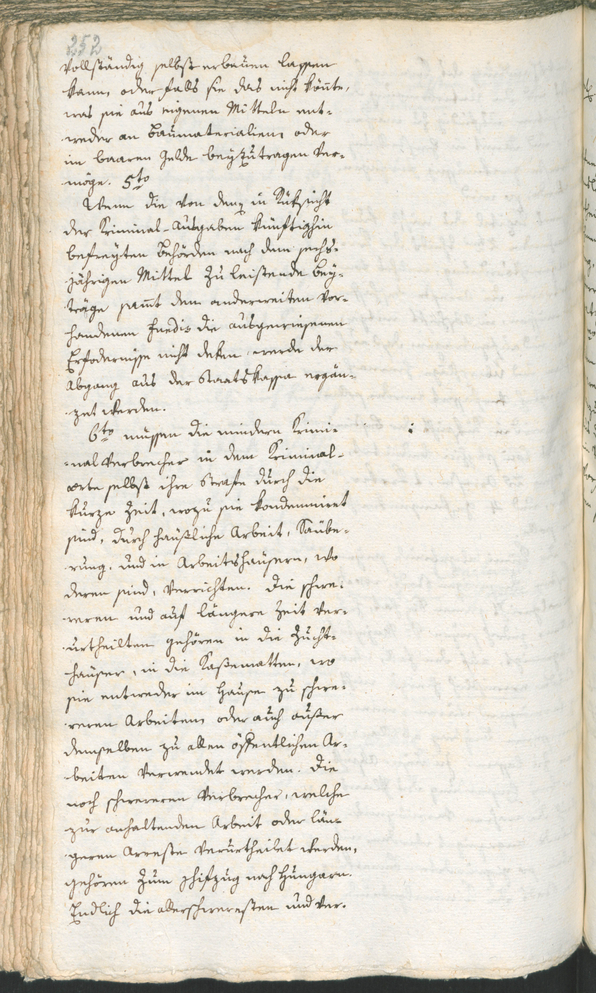 252
vollständig selbst erbauen lassen
kann, oder falls sie das nicht könnte,
was sie aus eigenen Mitteln ent-
weder an Baumaterialien, oder
im baaren Gelde beyzutragen ver-
möge. 5to
Wenn die von den in Rüksicht
der Kriminal-Ausgaben künftighin
befreyten Behörden nach dem sechs-
jährigen Mittel zu leistende Bey-
träge samt dem anderweiten vor-
handenen Fundis die ausgewiesenen
Erfodernisse nicht deken, werde der
Abgang aus der Staatskassa ergän-
zet werden.
6to müssen die mindern Krimi-
nal Verbrecher in dem Kriminal-
orte selbst ihre Strafe durch die
kurze Zeit, wozu sie kondemniret
sind, durch häußliche Arbeit, Säube-
rung, und in Arbeitshäusern, wo
deren sind, verrichten. Die schwe-
reren und auf längere Zeit ver-
urtheilten gehören in die Zucht-
häuser, in die Kasematten, wo
sie entweder im Hause zu schwe-
reren Arbeiten, oder auch außer
demselben zu allen öffentlichen Ar-
beiten verwendet werden. Die
noch schwereren Verbrecher, welche
zur anhaltenden Arbeit oder län-
geren Arreste verurtheilet werden,
gehören zum Schifzug nach Hungarn.
Endlich die allerschweresten und ver-